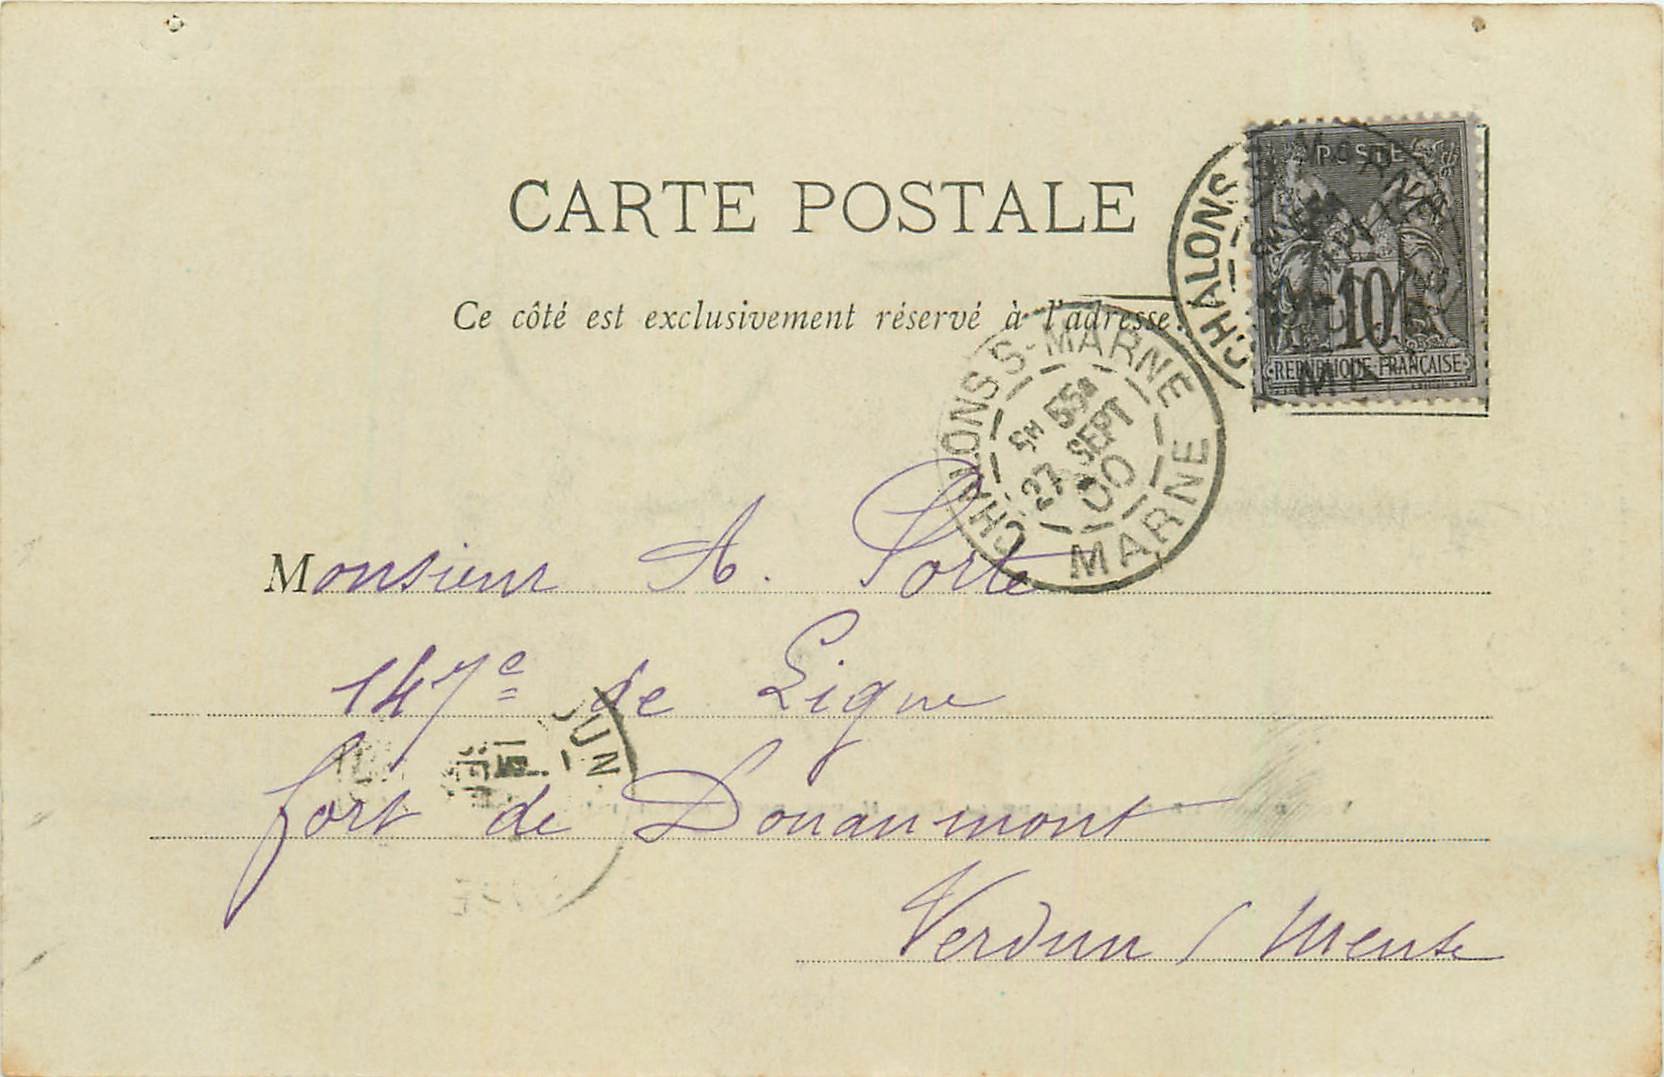 CARTE POSTALE
Ce côté est exclusivement réservé à l'adresse.
POSTE
10
RÉPUBLIQUE FRANÇAISE
CHALONS
CHALONS S-MARNE
27 SEPT
00
MARNE
Monsieur A. Porte
147e de Ligne
fort de Douaumont
Verdun / Meuse
DUN